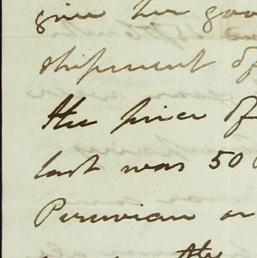 give her goo
shipment of
the price of
last was 50
Peruvian or
the